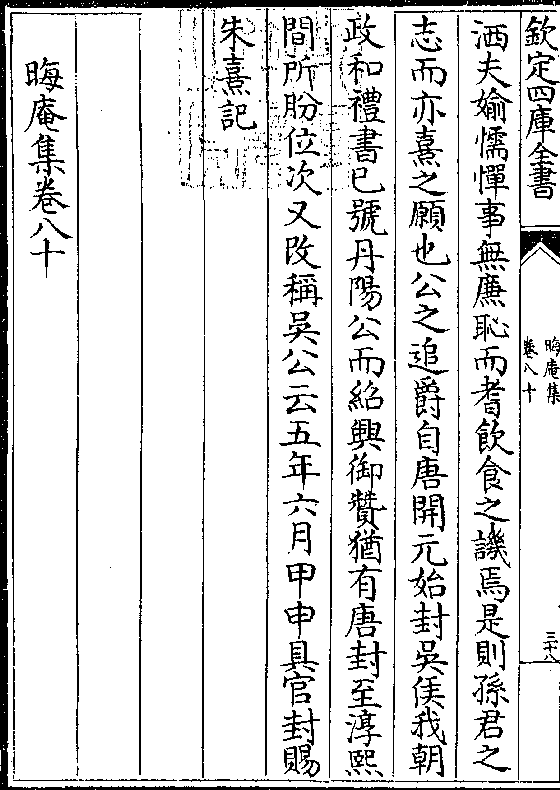 欽定四庫全書
晦庵集
卷八十
三十八
洒夫媮懦憚事無㢘恥而耆飲食之譏焉是則孫君之
志而亦熹之願也公之追爵自唐開元始封吳侯我朝
政和禮書已號丹陽公而紹興御贊猶有唐封至淳熙
間所肦位次又改稱吳公云五年六月甲申具官封賜
朱熹記
晦庵集卷八十